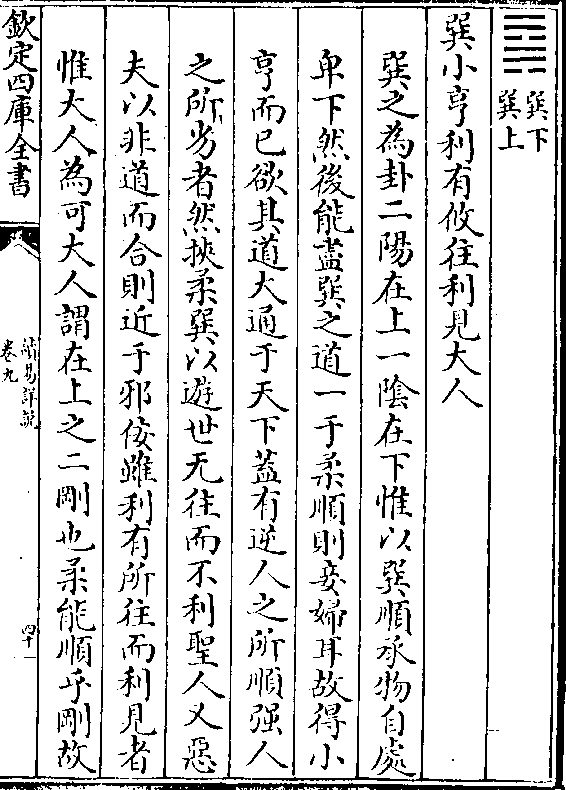 巽下
巽上
巽小亨利有攸往利見大人
巽之為卦二陽在上一陰在下惟以巽順承物自處
卑下然後能盡巽之道一于柔順則妾婦耳故得小
亨而已欲其道大通于天下蓋有逆人之所順强人
之所劣者然挾柔巽以遊世无往而不利聖人又惡
夫以非道而合則近于邪佞雖利有所往而利見者
惟大人為可大人謂在上之二剛也柔能順乎剛故
欽定四庫全書
讀易詳說
卷九
四十一